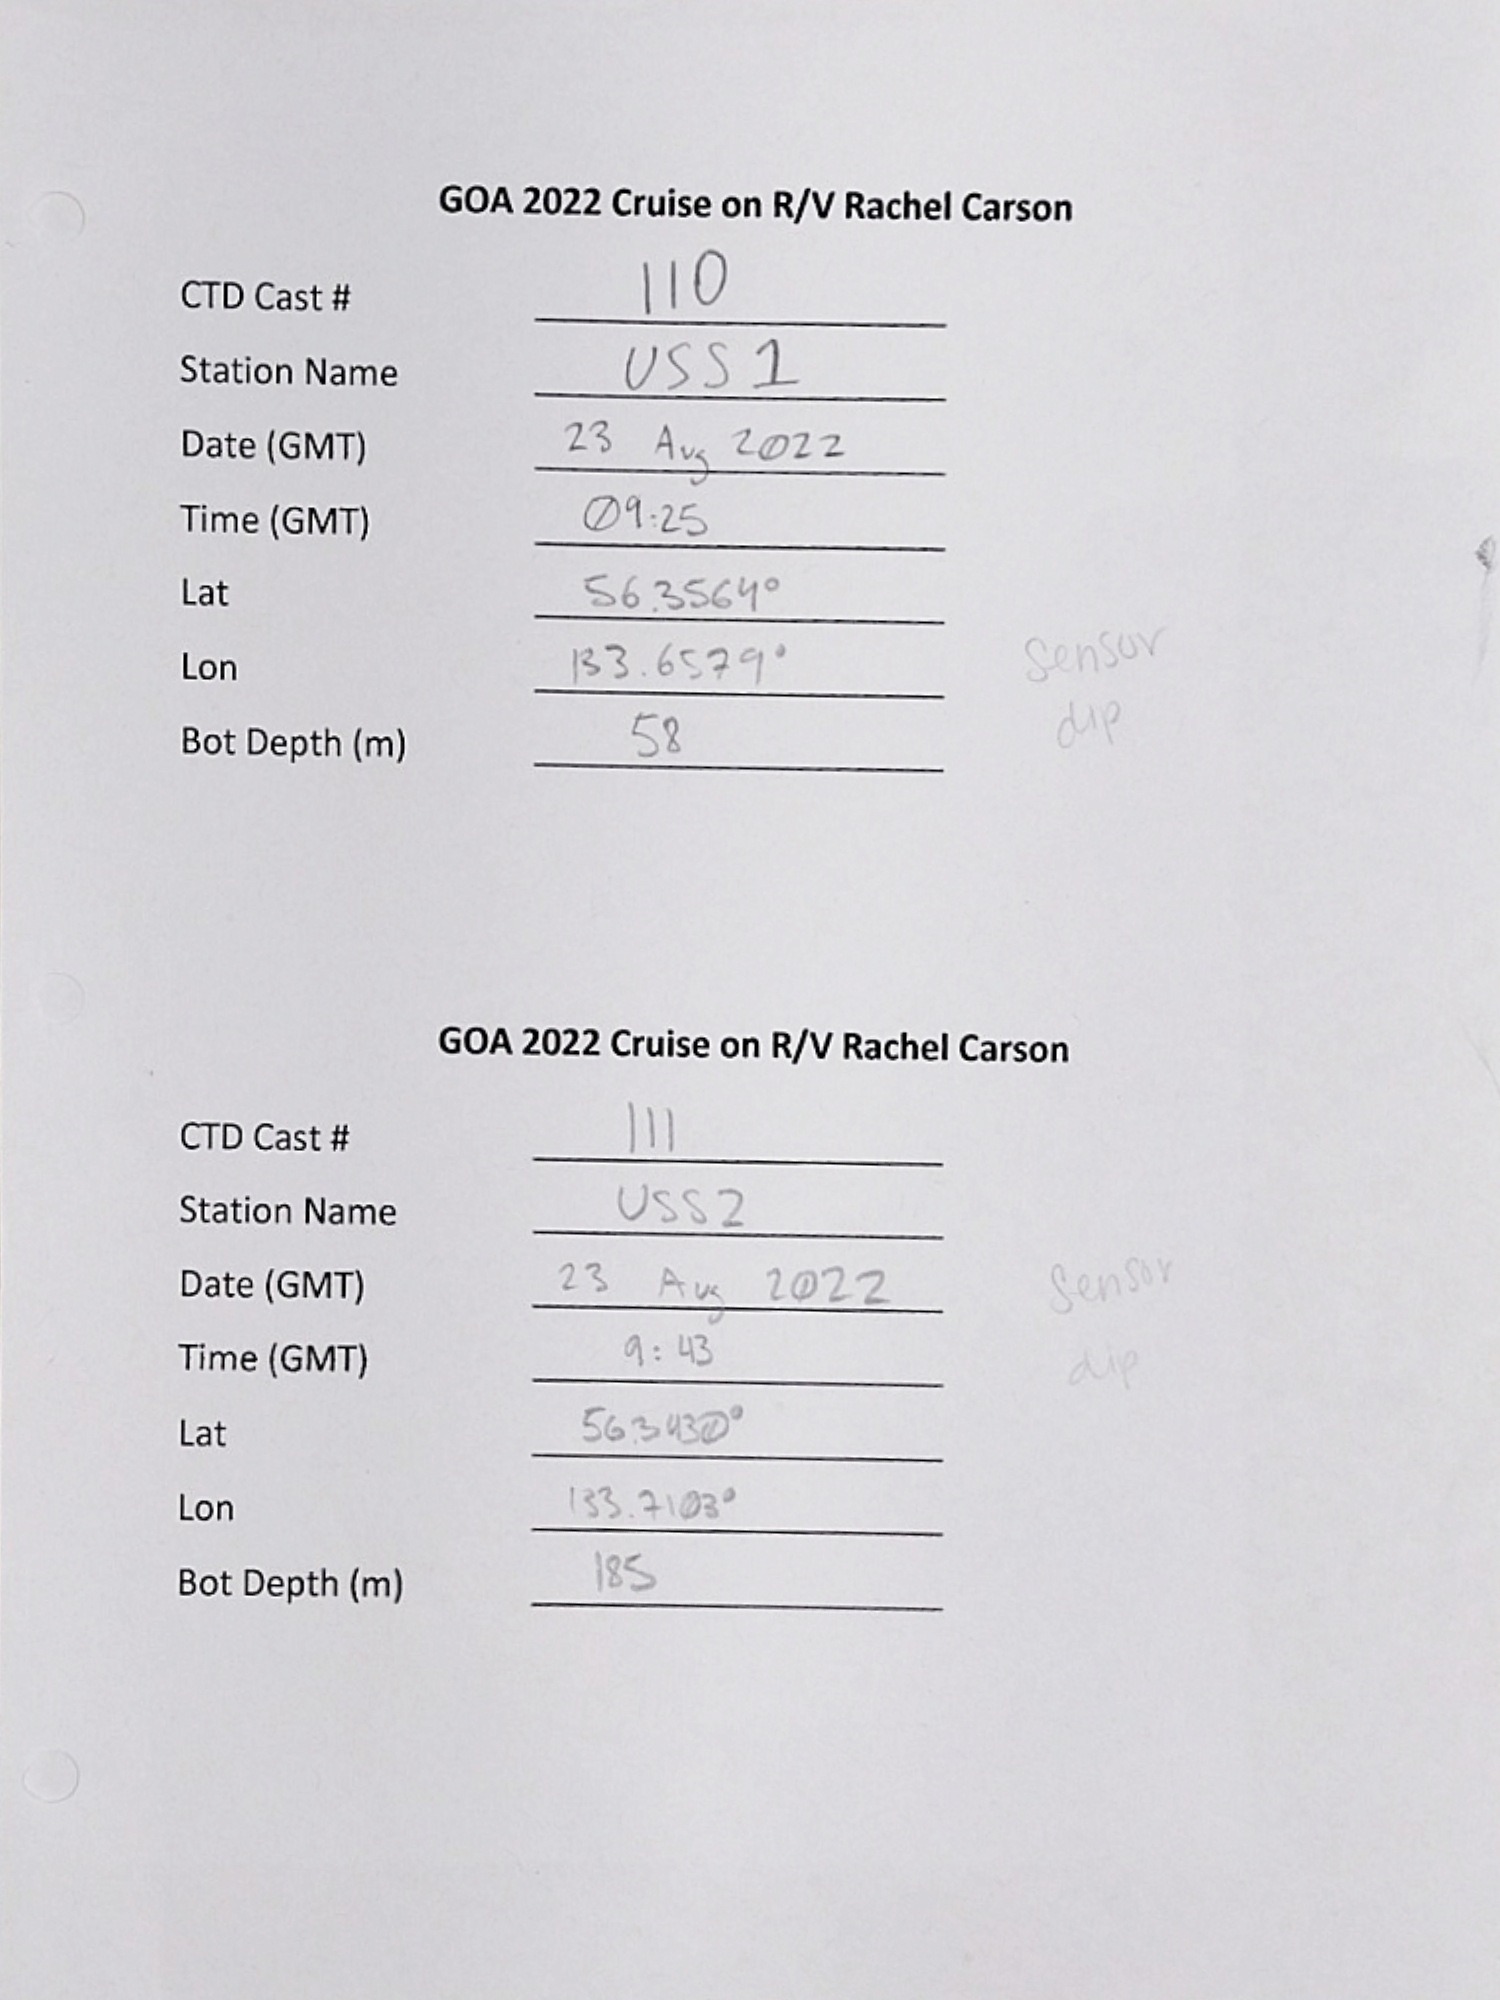 GOA 2022 Cruise on R/V Rachel Carson
CTD Cast # 110
Station Name USS 1
Date (GMT) 23 Aug 2022
Time (GMT) 09:25
Lat 56.3564°
Lon 133.6579°
Sensor
dip
Bot Depth (m) 58
GOA 2022 Cruise on R/V Rachel Carson
CTD Cast # 111
Station Name USS2
Date (GMT) 23 Aug 2022
Sensor
dip
Time (GMT) 9:43
Lat 56.3430°
Lon 133.7103°
Bot Depth (m) 185